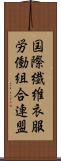 国際繊維衣服
労働組合連盟